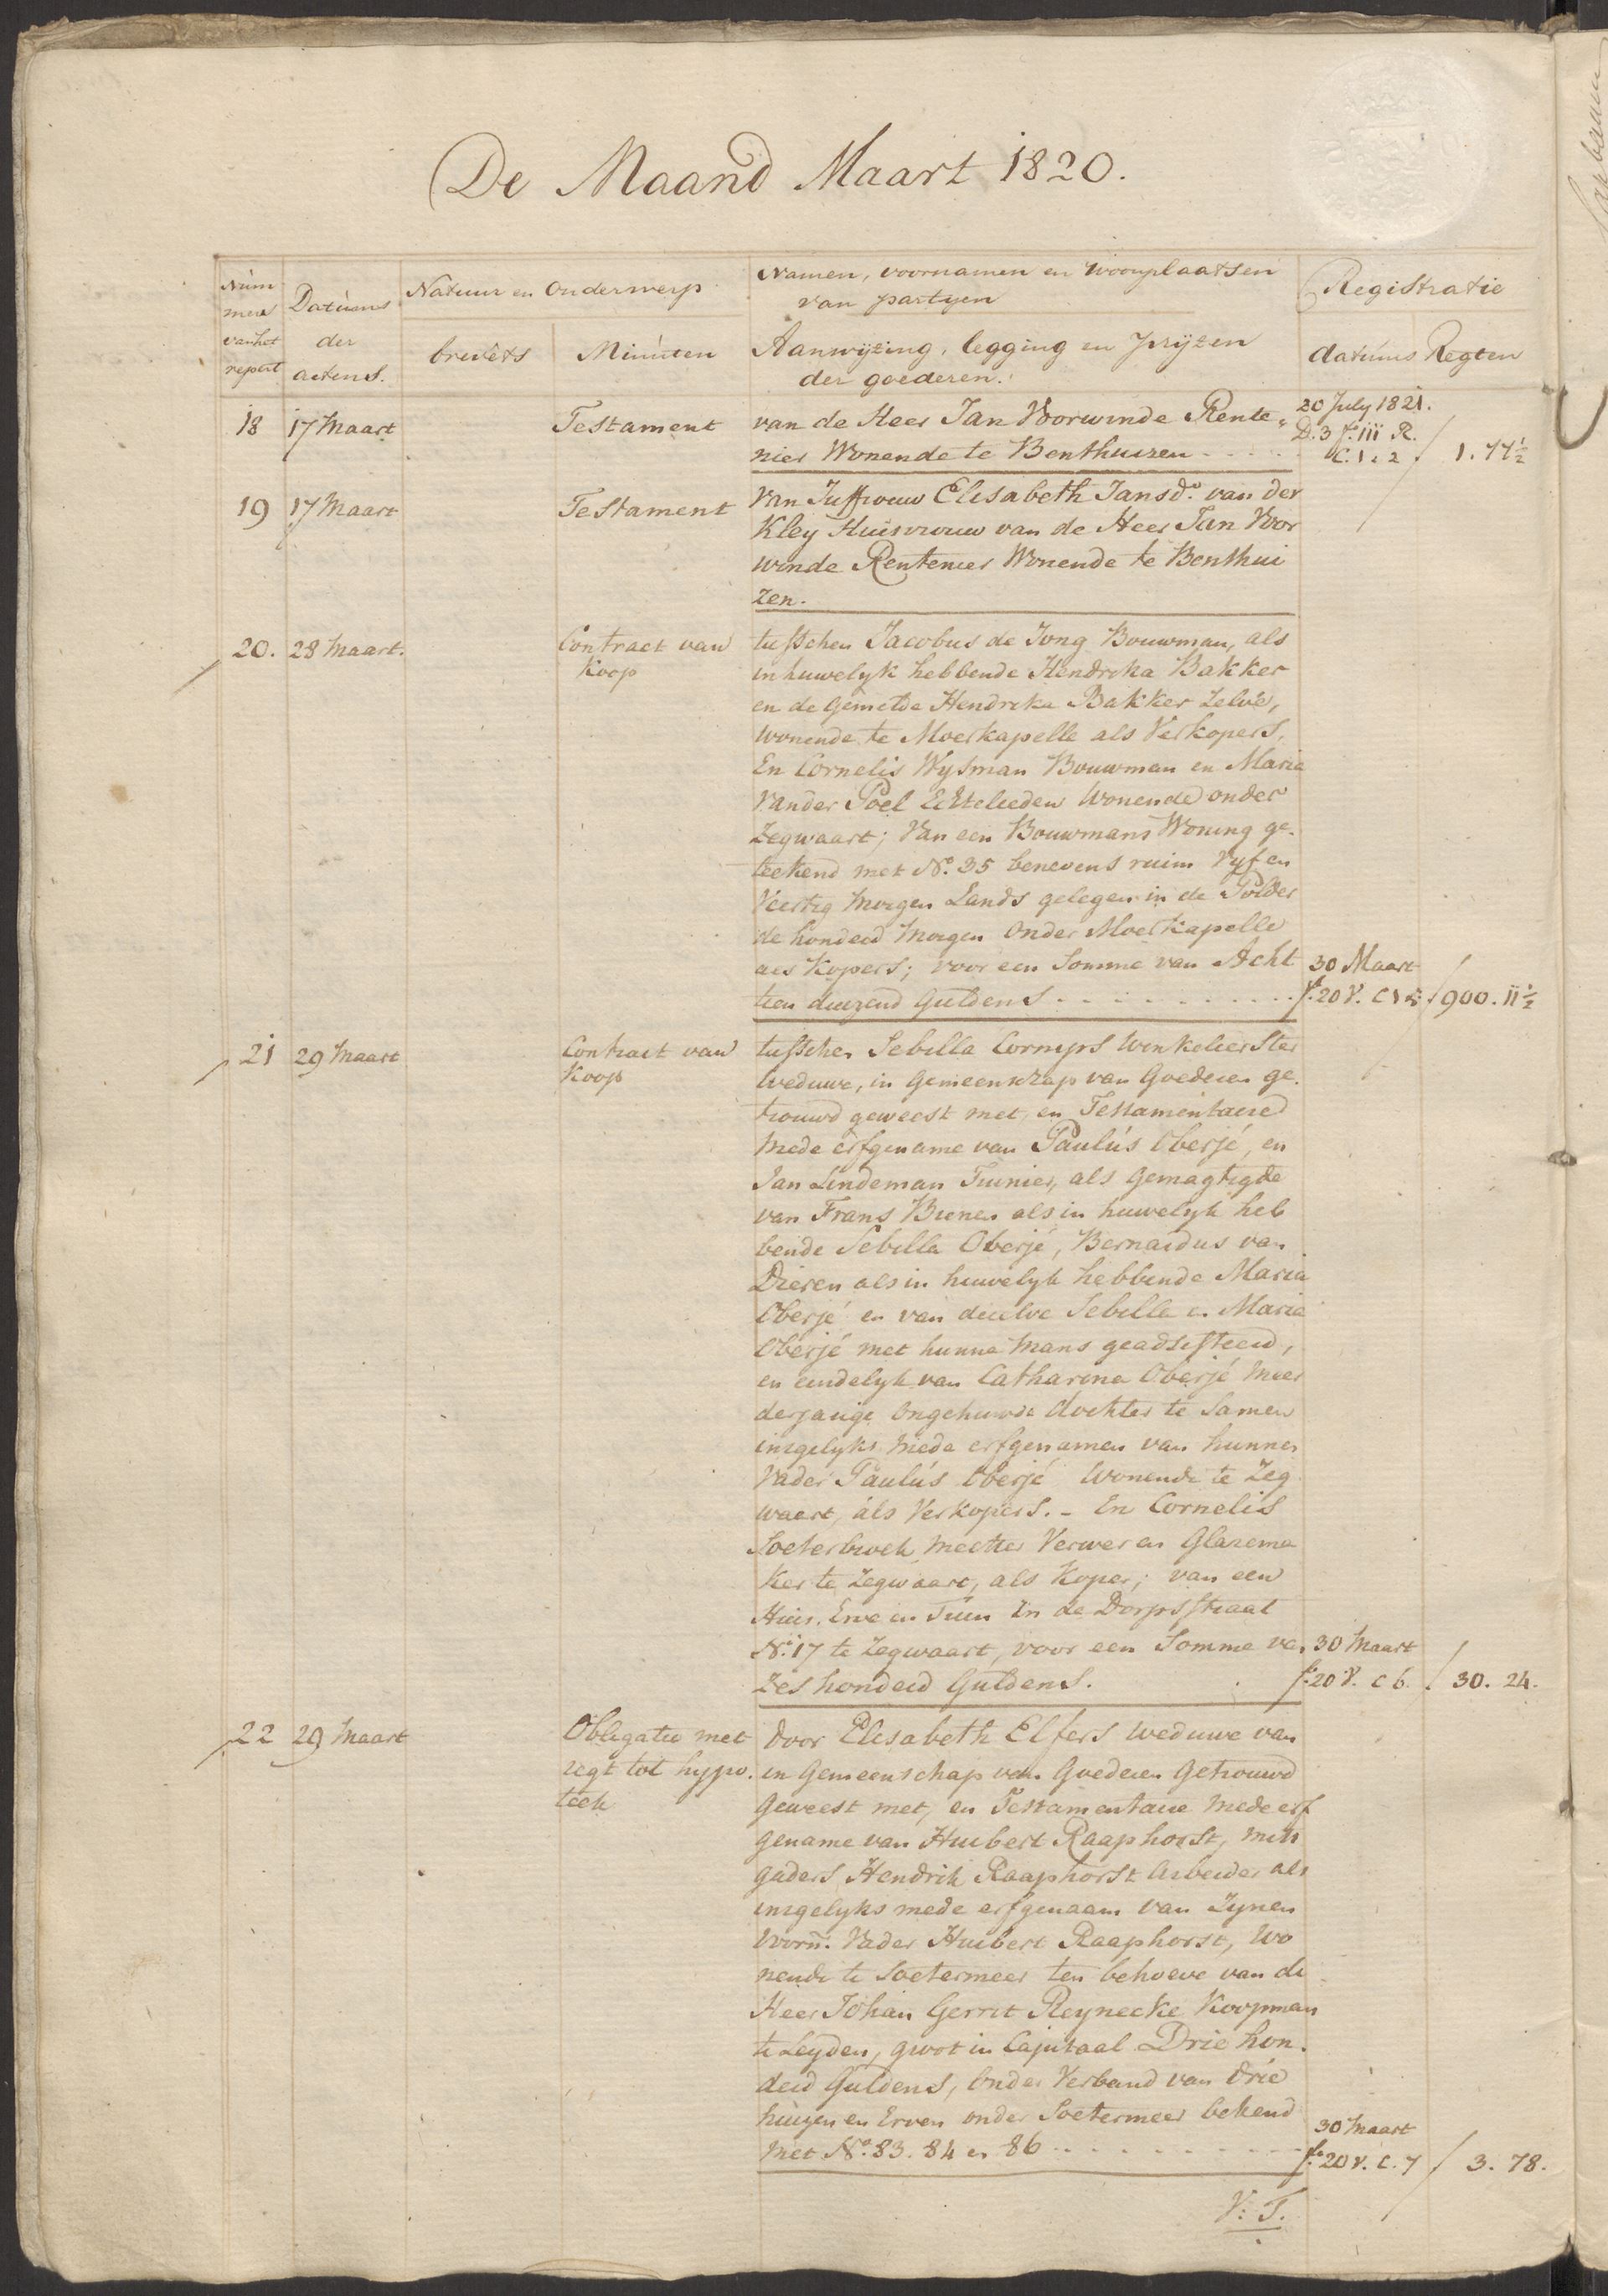 De Maand Maart 1820.
Num
mers
van het
repert
Datums
der
actens.
Natuur en Onderwerp
brevets
Minuten
Namen, voornamen en Woonplaatsen
van partyen
Aanwyzing, legging en Pryzen
der goederen.
Registratie
datums Regten
18 17 Maart Testament van de Heer Jan Voorwinde Rente„ 20 July 1821.
nier Wonende te Benthuizen D. 3 f. 111 R.
C. 1. 2. 1. 77½
19 17 Maart Testament Van Juffrouw Elisabeth Jansd. van der
Kley Huisvrouw van de Heer Jan Voor
winde Rentenier Wonende te Benthui
zen.
20. 28 Maart. Contract van tusschen Jacobus de Jong Bouwman, als
Koop in huwelyk hebbende Hendrika Bakker
en de gemelde Hendrika Bakker Zelve,
wonende te Moerkapelle als Verkopers,
En Cornelis Wysman Bouwman en Maria
Vander Poel Echtelieden Wonende onder
Zegwaart; Van een Bouwmans Woning ge.
teekend met No. 35 benevens ruim Vyf en
Veertig Morgen Lands gelegen in de Polder
de honderd Morgen Onder Moerkapelle
als Kopers; voor een Somme van Acht 30 Maart
tien duizend Guldens f. 20 V. C 900. 11½
21 29 Maart Contract van tusschen Sebilla Cornips Winkelierster
Koop Weduwe, in Gemeenschap van Goederen ge.
trouwd geweest met, en Testamentaire
Mede erfgename van Paulus Oberjé, en
Jan Lindeman Tuinier, als Gemagtigde
van Frans Bienen als in huwelyk heb
bende Sebilla Oberjé, Bernardus van
Dieren als in huwelyk hebbende Maria
Oberjé en van dezelve Sebilla en Maria
Oberjé met hunne Mans geadsisteerd,
en eindelyk van Catharina Oberjé Meer
derjarige Ongehuwde dochter te Samen
insgelyks Mede erfgenamen van hunnen
Vader Paulus Oberjé Wonende te Zeg
waart, als Verkopers. - En Cornelis
Soeterbroek Meester Verwer en Glazema
ker te Zegwaart, als Koper; van een
Huis, Erve en Tuin In de Dorpsstraat
No. 17 te Zegwaart, voor een Somme van 30 Maart
Zes honderd Guldens. f. 20 V. C 6. 30. 24.
22 29 Maart Obligatie met door Elisabeth Elfers Weduwe van
regt tot hypo. in Gemeenschap van Goederen Getrouwd
teek Geweest met, en Testamentaire Mede erf
gename van Huibert Raaphorst, mits
gaders Hendrik Raaphorst Arbeider als
insgelyks mede erfgenaam van Zynen
Vader Huibert Raaphorst, Wo
nende te Soetermeer ten behoeve van de
Heer Johan Gerrit Reynecke Koopman
te Leyden, groot in Capitaal Drie hon.
derd Guldens, Onder Verband van Drie
huizen en Erven onder Soetermeer bekend 30 Maart
met No. 83. 84 en 86 f. 20 V. C. 7 3. 78.
V: T.